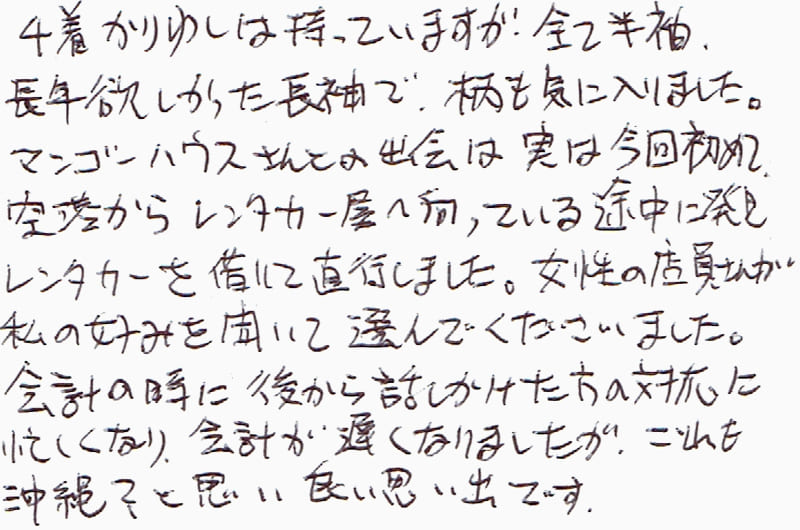 4着かりゆしは持っていますが、全て半袖、
長年欲しかった長袖で、柄も気に入りました。
マンゴーハウスさんとの出会は実は今回初めて、
空港からレンタカー屋へ向っている途中に発見
レンタカーを借りて直行しました。女性の店員さんが
私の好みを聞いて選んでくださいました。
会計の時に後から話しかけた方の対応に
忙しくなり、会計が遅くなりましたが、これも
沖縄そと思い良い思い出です。